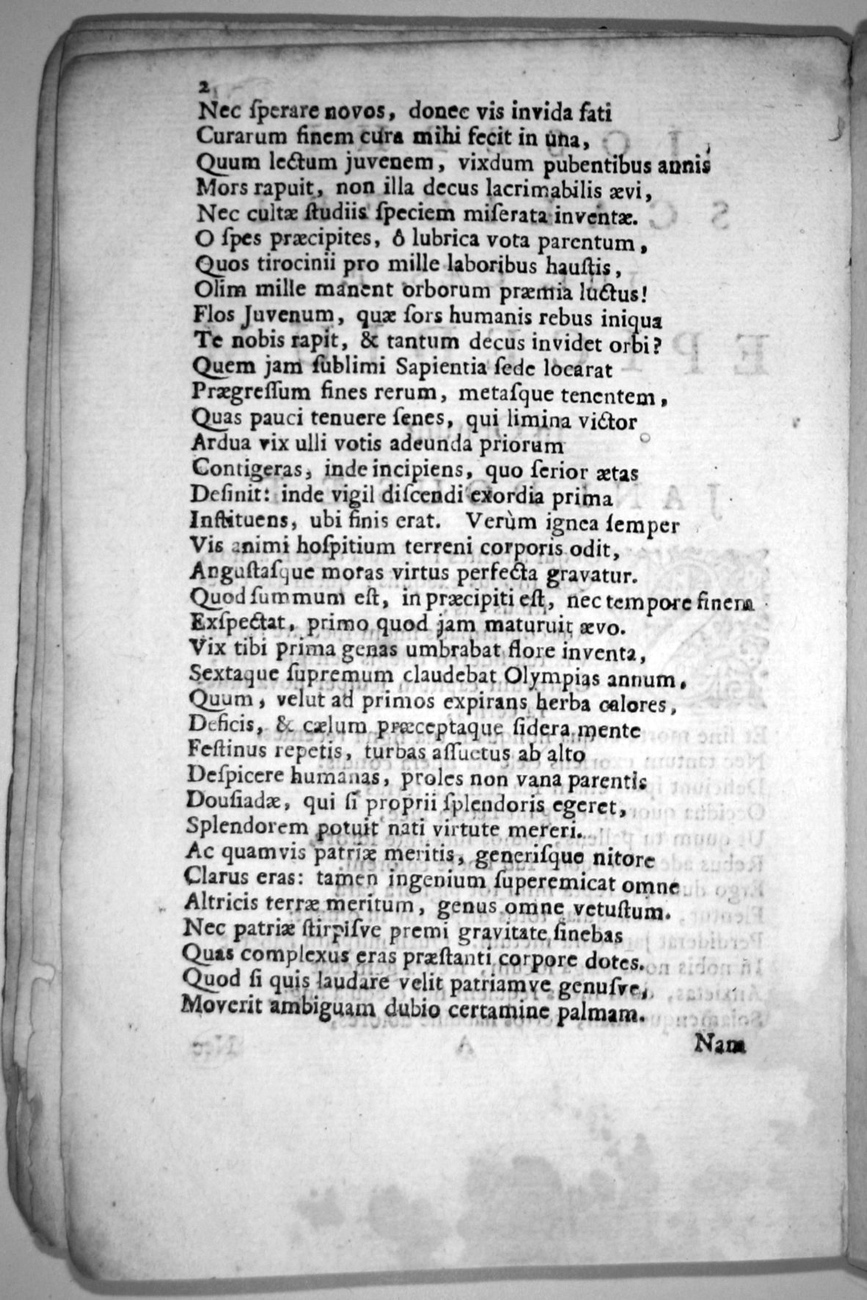 2
Nec ſperare novos, donec vis invida fati
Curarum finem cura mihi fecit in una,
Quum lectum juvenem, vixdum pubentibus annis
Mors rapuit, non illa decus lacrimabilis ævi,
Nec cultæ ſtudiis ſpeciem miſerata inventæ.
O ſpes præcipites, ô lubrica vota parentum,
Quos tirocinii pro mille laboribus hauſtis,
Olim mille manent orborum præmia luctus!
Flos Juvenum, quæ ſors humanis rebus iniqua
Te nobis rapit, & tantum decus invidet orbi?
Quem jam ſublimi Sapientia ſede locarat
Prægreſſum fines rerum, metaſque tenentem,
Quas pauci tenuere ſenes, qui limina victor
Ardua vix ulli votis adeunda priorum
Contigeras, inde incipiens, quo ſerior ætas
Definit: inde vigil diſcendi exordia prima
Inſtituens, ubi finis erat. Verùm ignea ſemper
Vis animi hoſpitium terreni corporis odit,
Anguſtaſque moras virtus perfecta gravatur.
Quod ſummum eſt, in præcipiti eſt, nec tempore finem
Exſpectat, primo quod jam maturuit ævo.
Vix tibi prima genas umbrabat flore inventa,
Sextaque ſupremum claudebat Olympias annum,
Quum, velut ad primos expirans herba calores,
Deficis, & cælum præceptaque ſidera mente
Feſtinus repetis, turbas aſſuetus ab alto
Deſpicere humanas, proles non vana parentis
Douſiadæ, qui ſi proprii ſplendoris egeret,
Splendorem potuit nati virtute mereri.
Ac quamvis patriæ meritis, generiſque nitore
Clarus eras: tamen ingenium ſuperemicat omne
Altricis terræ meritum, genus omne vetuſtum.
Nec patriæ ſtirpiſve premi gravitate ſinebas
Quas complexus eras præſtanti corpore dotes.
Quod ſi quis laudare velit patriamve genuſve,
Moverit ambiguam dubio certamine palmam.
Nam